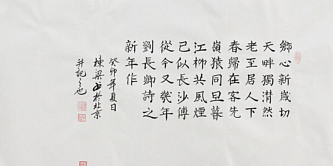 鄉心新歲切
天畔獨潸然
老至居人下
春歸在客先
嶺猿同旦暮
江柳共風煙
已似長沙傅
從今又幾年
劉長卿詩之
新年作
癸卯年夏日
棟梁書於北京
并記之也